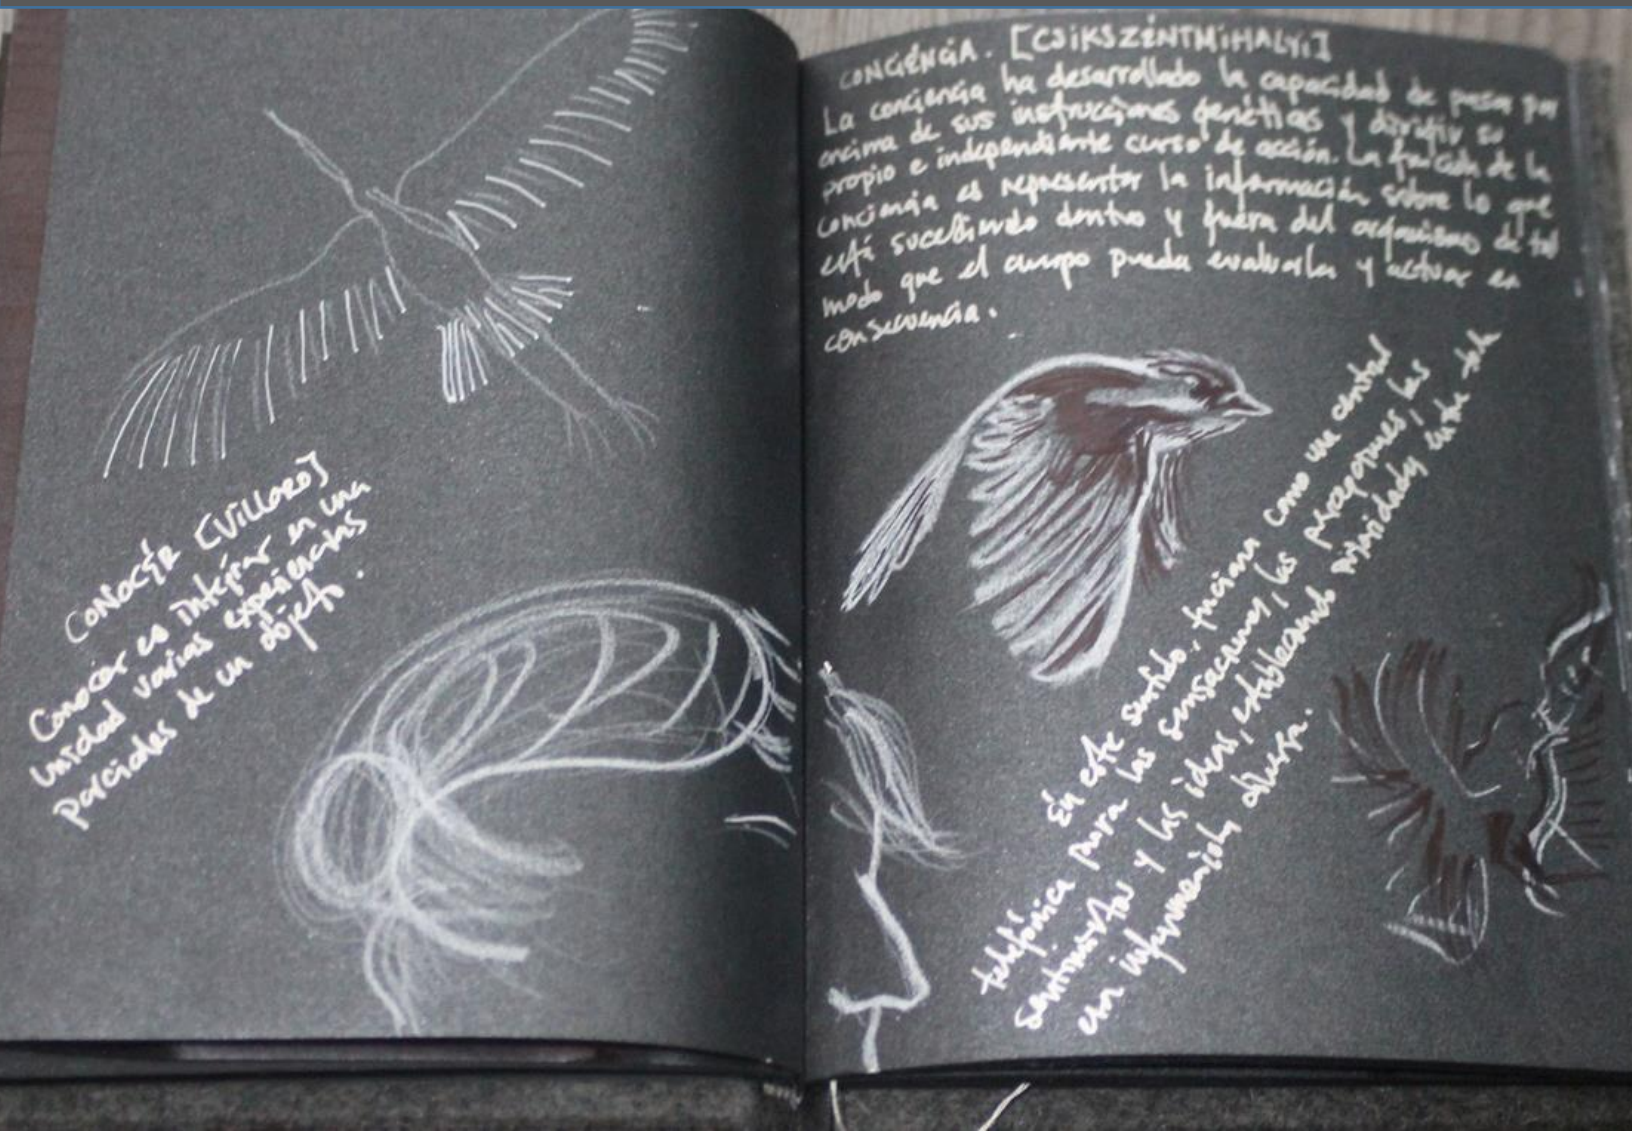 CONOCER [VILLORO]
Conocer es integrar en una
unidad varias experiencias
parciales de un objeto.
CONCIENCIA. [CSIKSZENTMIHALYI]
La conciencia ha desarrollado la capacidad de pasar por
encima de sus instrucciones genéticas y dirigir su
propio e independiente curso de acción. La función de la
conciencia es representar la información sobre lo que
está sucediendo dentro y fuera del organismo de tal
modo que el cuerpo pueda evaluarla y actuar en
consecuencia.
En este sentido, funciona como una central
telefónica para las sensaciones, las percepciones, los
sentimientos y las ideas, estableciendo prioridades entre toda
esa información diversa.